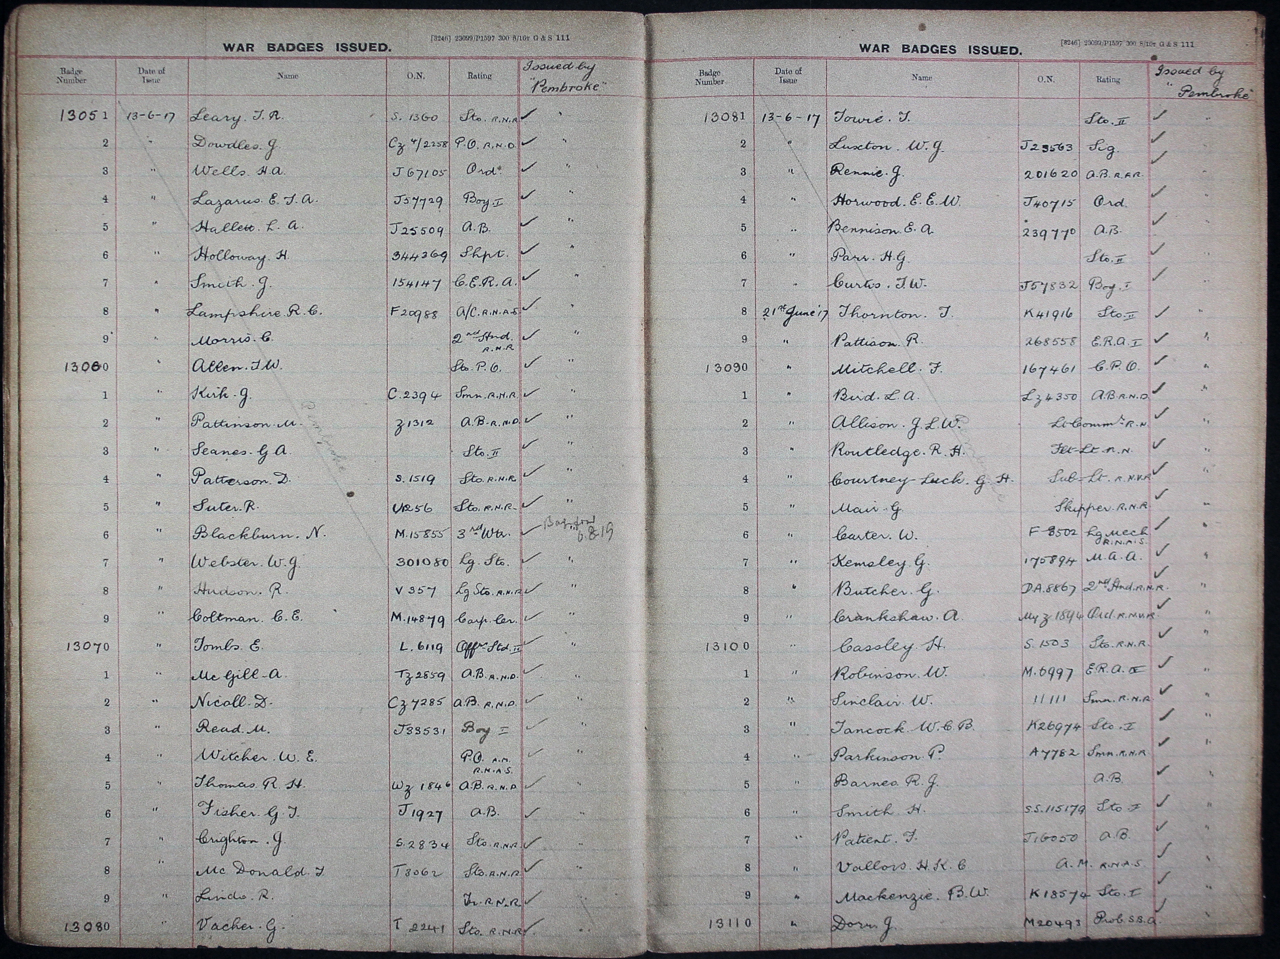 WAR BADGES ISSUED. [8246] 23099/P1597 300 8/16r G & S 111
Badge Number Date of Issue Name O.N. Rating Issued by "Pembroke"
13051 13-6-17 Leary. T. R. S. 1360 Sto. R.N.R ✓ "
2 " Dowdles. J Cz 4/2258 P.O. R.N.D. ✓ "
3 " Wells. H.A. J67105 Ord. ✓ "
4 " Lazarus. E. T. A. J57729 Boy. I ✓ "
5 " Hallett. L. A. J25509 A.B. ✓ "
6 " Holloway. H. 344269 Shpt. ✓ "
7 " Smith. J. 154147 C.E.R.A. ✓ "
8 " Lampshire. R. C. F20988 A/C. R.N.A.S. ✓ "
9 " Morris. C. 2nd Hnd. R.N.R ✓ "
13060 " Allen. T.W. Sto. P.O. ✓ "
1 " Kirk. J. C. 2394 Smn. R.N.R. ✓ "
2 " Pattinson. M. Z1312 A.B. R.N.D. ✓ "
3 " Seanes. G A. Sto. II ✓ "
4 " Patterson. D. S. 1519 Sto. R.N.R. ✓ "
5 " Suter. R. U256 Sto. R.N.R. ✓
6 " Blackburn. N. M.15855 3rd Wtr. ✓ 6.8.19
7 " Webster. W. J 301080 Lg. Sto. ✓ "
8 " Hudson. R. V 357 Lg Sto. R.N.R ✓ "
9 " Coltman. C. E. M.14879 Carp. Cr. ✓ "
13070 " Tombs. E. L. 6119 Offrs Std. II ✓ "
1 " Mc Gill. A. TZ2859 A.B. R.N.D. ✓ "
2 " Nicall. D. CZ7285 A.B. R.N.D. ✓ "
3 " Read. M. J33531 Boy I ✓ "
4 " Witcher. W. E. P.O. A.M. R.N.A.S. ✓ "
5 " Thomas. R. H. WZ 1846 A.B. R.N.D ✓ "
6 " Fisher. G. T. J1927 A.B. ✓ "
7 " Crighton. J S. 2834 Sto. R.N.R. ✓ "
8 " Mc Donald. T T3062 Sto. R.N.R ✓ "
9 " Lindo. R. Tr. R.N.R ✓ "
13080 " Vacher. G. T 2241 Sto. R.N.R. ✓ "
Pembroke
WAR BADGES ISSUED. [8246] 23099/P1597 300 8/16r G & S 111
Badge Number Date of Issue Name O.N. Rating Issued by "Pembroke"
13081 13-6-17 Towie. T. Sto. II ✓ "
2 " Luxton. W. J. J23563 Sig. ✓ "
3 " Rennie. J. 201620 A.B. R.F.R. ✓ "
4 " Horwood. E. E. W. J40715 Ord. ✓ "
5 " Bennison. E. A. 239770 A.B. ✓
6 " Parr. H.G. Sto. II ✓ "
7 " Curtis. T.W. J57832 Boy. I ✓ "
8 21st June '17 Thornton. T. K41916 Sto. II ✓ "
9 " Pattison. R. 268558 E.R.A. I ✓ "
13090 " Mitchell. F. 167461 C.P.O. ✓ "
1 " Bird. L. A. LZ4350 A.B. R.N.D. ✓ "
2 " Allison. J. L. W. Lt. Commr. R.N. ✓ "
3 " Routledge. R. H. Flt. Lt. R.N. ✓ "
4 " Courtney-Luck. G. H. Sub-Lt. R.N.V.R ✓ "
5 " Mair. G. Skipper. R.N.R. ✓ "
6 " Carter. W. F 8502 Lg Mech R.N.A.S. ✓ "
7 " Kemsley G. 175894 M.A.A. ✓ "
8 " Butcher. G. DA.8867 2nd Hnd. R.N.R. ✓ "
9 " Crankshaw. A. My Z. 1894 Ord. R.N.V.R ✓ "
13100 " Cassley. H. S. 1503 Sto. R.N.R. ✓ "
1 " Robinson. W. M. 6997 E.R.A. IV ✓ "
2 " Sinclair. W. 11111 Smn. R.N.R. ✓ "
3 " Tancock. W. C. B. K26974 Sto. I ✓ "
4 " Parkinson. P. A7782 Smn. R.N.R ✓ "
5 " Barnes. R. J. A.B. ✓ "
6 " Smith. H. S.S.115179 Sto. I ✓ "
7 " Patient. F. J16050 A.B. ✓ "
8 " Vallors. H. K. C A.M. R.N.A.S. ✓ "
9 " Mackenzie. B.W. K18574 Sto. I ✓ "
13110 " Dorn J. M20493 Prob. S.B.A. ✓ "
Pembroke